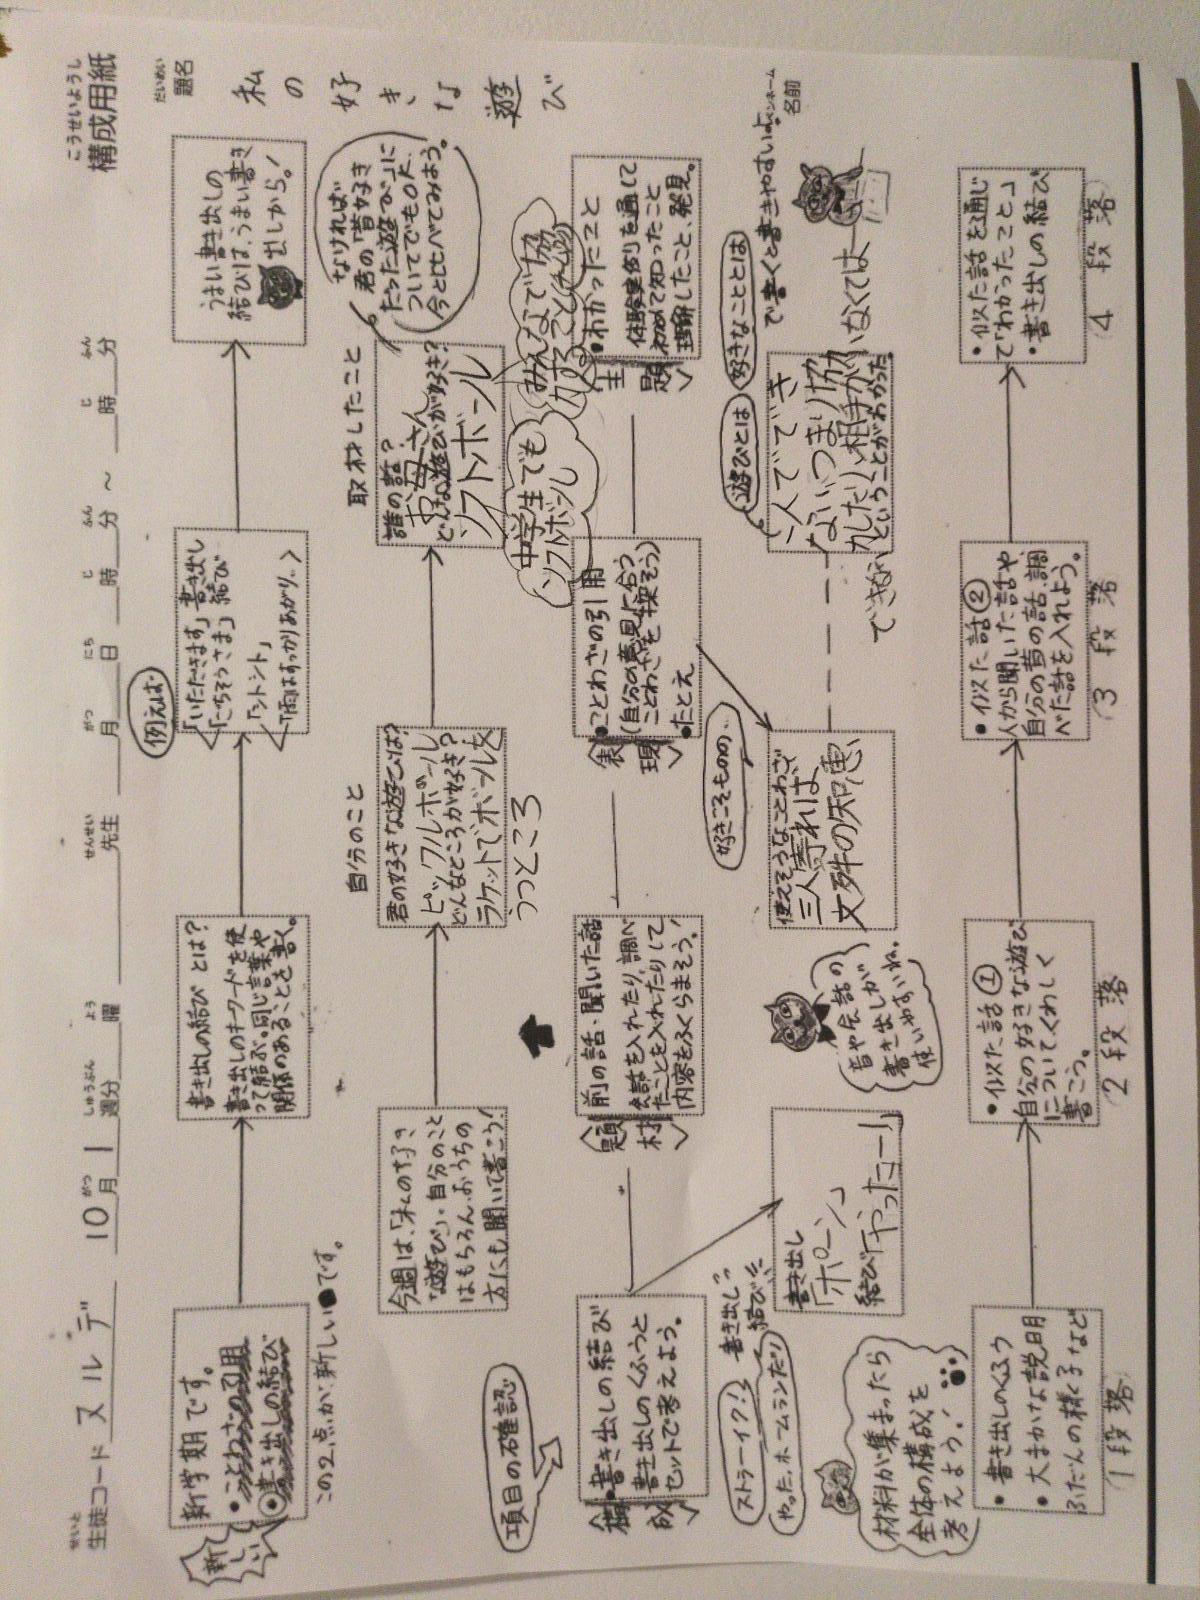 こうせいようし
構成用紙
せいと
生徒コード スルデ 10月1週分 曜 先生 月 日 時 分 ～ 時 分
がつ しゅうぶん よう せんせい がつ にち じ ふん じ ふん
だいめい
題名
私の好きな遊び
ペンネーム
名前
新しい
新学期です。
・ことわざの引用
・書き出しの結び
この2点が新しい●です。
書き出しの結びとは?
書き出しのキーワードを使
って結ぶ。同じ言葉や
関係のあることを書く。
例えば
「いただきます」書き出し
「ごちそうさま」結び
「シトシト」
「雨はすっかりあがり…」
うまい書き出しの
結びは、うまい書き
出しから。!
今週は、「私の好き
な遊び」。自分のこと
はもちろん、おうちの
方にも聞いて書こう!
自分のこと
君の好きな遊びは?
ピックルボール
どんなところが好き?
ラケットでボールを
うつところ
取材したこと
誰の話?
お母さん
どんな遊びが好き?
ソフトボール
なければ
君の「昔好き
だった遊び」に
ついてでもOK。
今と比べてみよう。
中学生でも
ソフトボール
みんなで協
力することが
項目の確認
構成
・書き出しの結び
書き出しのくふうと
セットで考えよう。
題材
前の話・聞いた話
会話を入れたり、調べ
たことを入れたりして
内容をふくらまそう!
表現
・ことわざの引用
(自分の意見に合う
ことわざを探そう)
・たとえ
主題
・わかったこと
体験実例を通して
初めて知ったこと
理解したこと、発見。
ストラーイク!!
やった、ホームランだり
書き出し
結び
書き出し
「ポーン」
結び「やったー!」
音や会話の
書き出しが
使いやすいね。
好きこそものの…
使えそうなことわざ
三人寄れば
文殊の知恵
遊びとは
好きなこととは
で書くと書きやすいよ
一人でできない、つまり協
力したり、相手がいなくては
できないということがわかった
材料が集まったら
全体の構成を
考えよう!
・書き出しのくふう
・大まかな説明
ふだんの様子など
1段落
・似た話①
自分の好きな遊び
についてくわしく
書こう。
2段落
・似た話②
人から聞いた話や、
自分の昔の話、調
べた話を入れよう。
3段落
・似た話を通じ
て「わかったこと」
・書き出しの結び
4段落